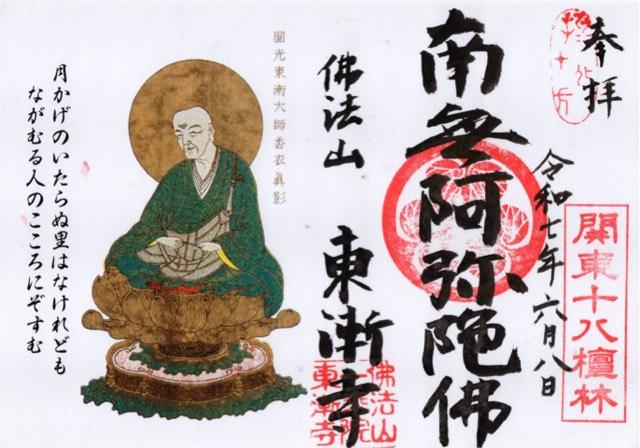 奉拝
南無阿弥陀佛
令和七年六月八日
関東十八檀林
佛法山
東漸寺
佛法山
東漸寺
圓光東漸大師香衣真影
月かげのいたらぬ里はなけれども
ながむる人のこころにぞすむ